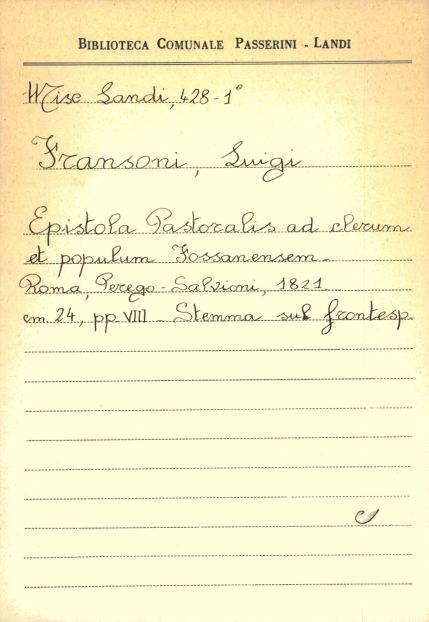 BIBLIOTECA COMUNALE PASSERINI - LANDI
Misc Landi, 428-1°
Fransoni, Luigi
Epistola Pastoralis ad clerum
et populum Fossanensem.
Roma, Perego-Salvioni, 1821.
cm 24, pp. VIII. Stemma sul frontesp.